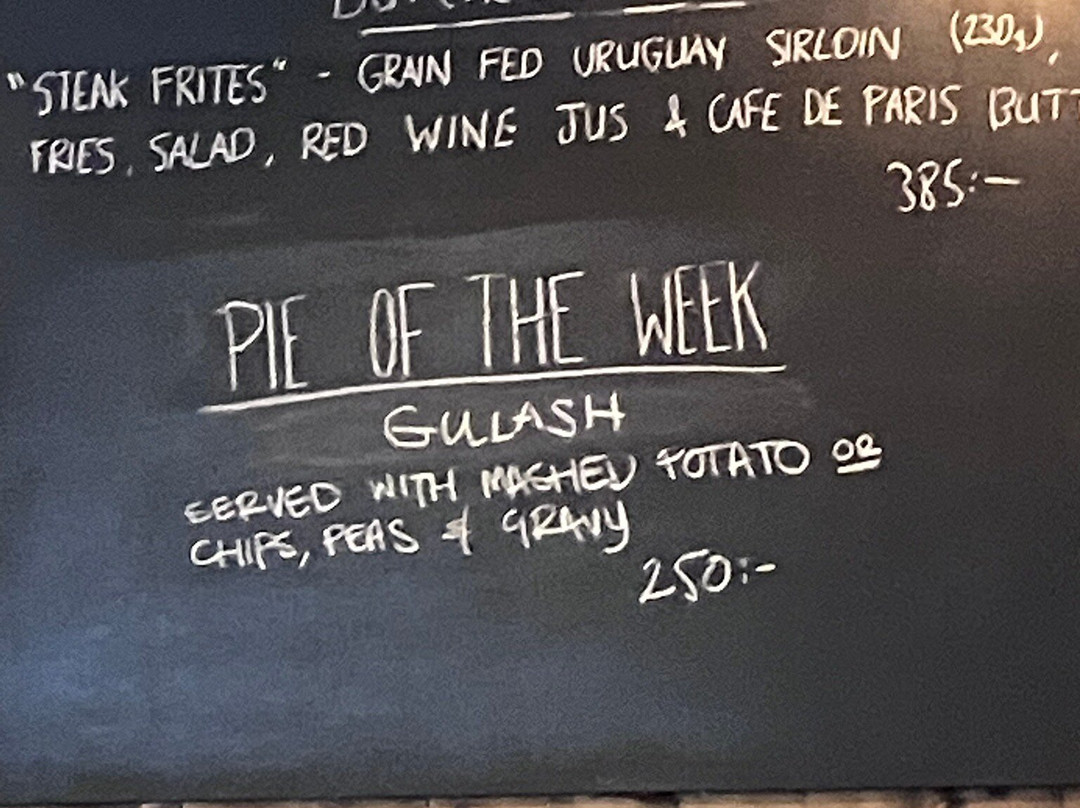 "STEAK FRITES" - GRAIN FED URUGUAY SIRLOIN (230g),
FRIES, SALAD, RED WINE JUS & CAFE DE PARIS BUTT
385:-
PIE OF THE WEEK
GULASH
SERVED WITH MASHED POTATO OR
CHIPS, PEAS & GRAVY
250:-